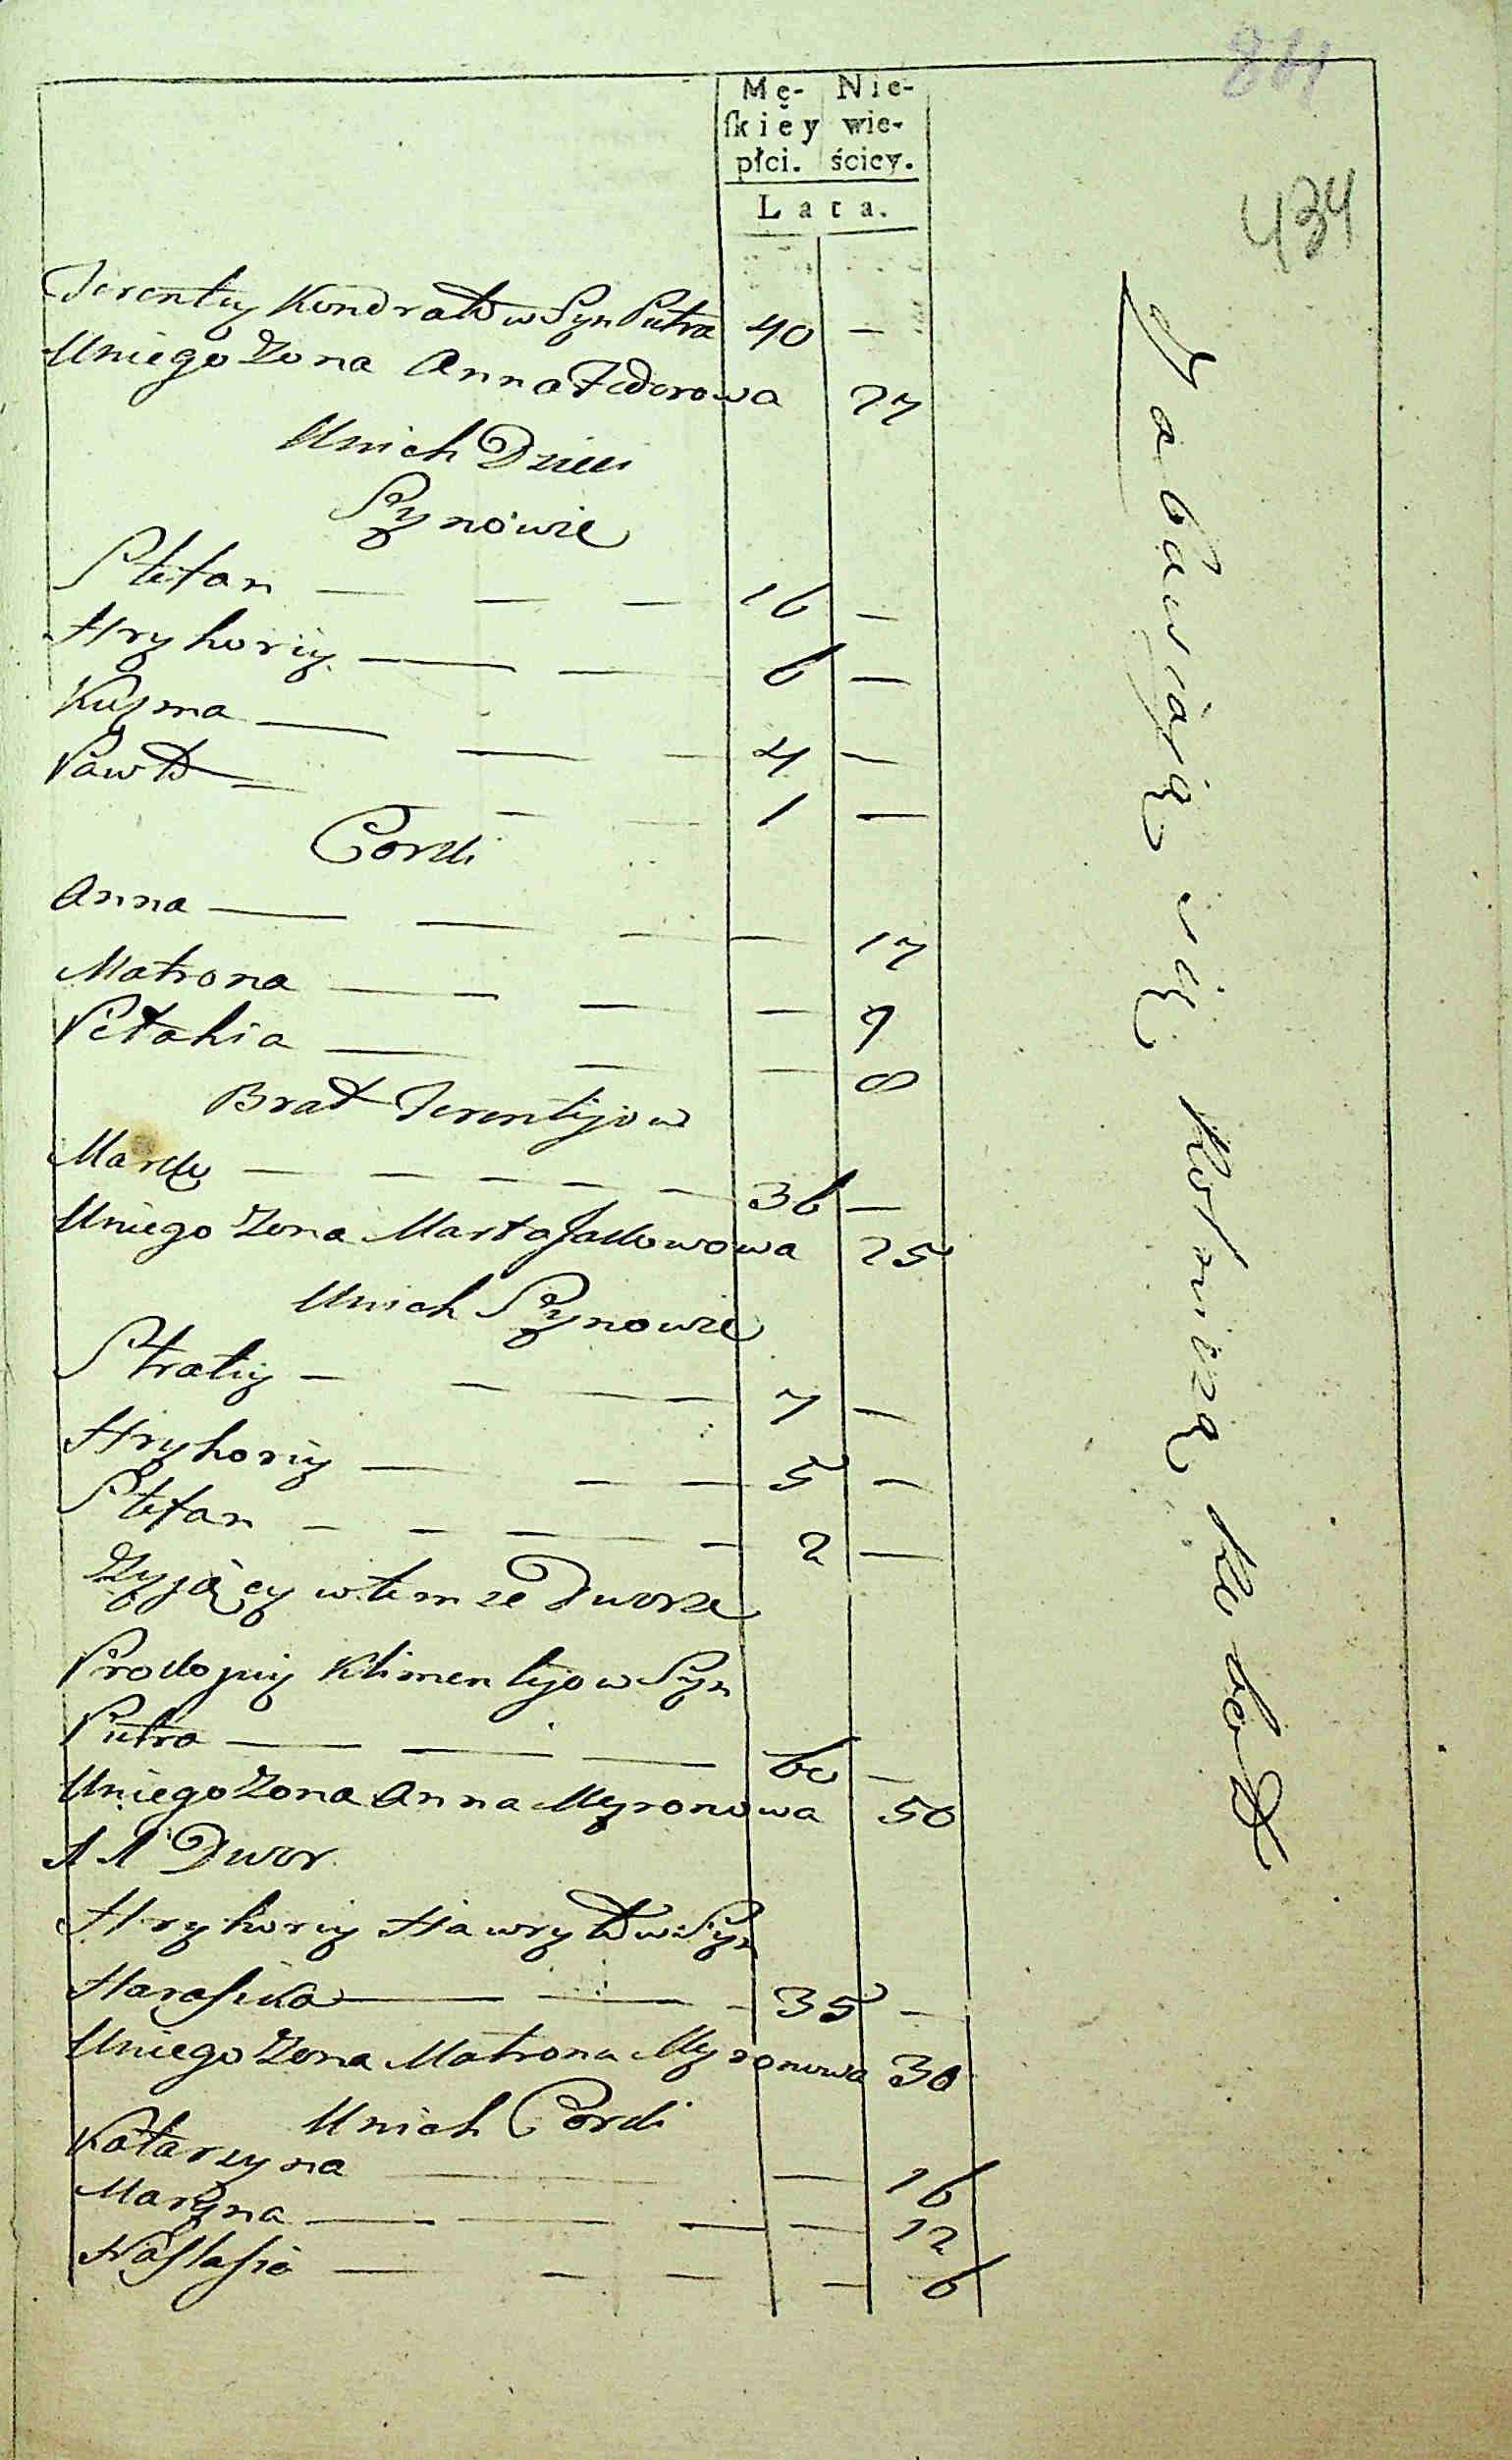 841
434
Mę- Nie-
ſkiey wie-
płci. ścicy.
Lata.
Terentiy Kondratów Syn Putra 40 —
Uniego Zona Anna Fedorowa 27
Unich Dzieci
Synowie
Stefan — — — 16 —
Hryhoriy — — 6 —
Kuzma — — — 4 —
Paweł — — — 1 —
Corki
Anna — — — — 17
Matrona — — — 9
Pełahia — — — 8
Brat Terentijow
Marko — — — — — 36 —
Uniego Zona Marta Jackowowa 25
Unich Synowie
Stratiy — — — — 7 —
Hryhoriy — — — 5 —
Stefan — — — — 2 —
Zyjący wtemze Dworze
Prokopiy Klimentijow Syn
Putra — — — 60 —
Uniego Zona Anna Myronowa 50
11 Dwor
Hryhoriy Hawryłow Syn
Harasika — — — 35 —
Uniego Zona Matrona Myronowa 30
Unich Corki
Katarzyna — — 16
Maryna — — — — 12
Nastasia — — — — 6
Zabawiaią się Rolniczą Robotą